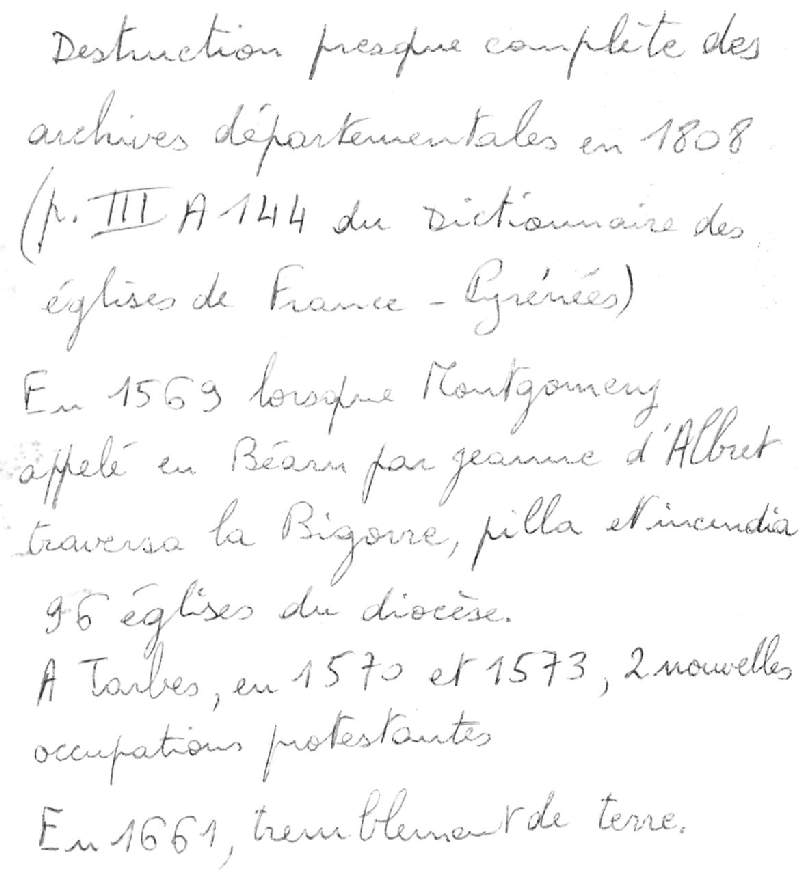 Destruction presque complète des
archives départementales en 1808
(p. III A 144 du Dictionnaire des
églises de France - Pyrénées)
En 1569 lorsque Montgomery
appelé en Béarn par Jeanne d'Albret
traversa la Bigorre, pilla et incendia
96 églises du diocèse.
A Tarbes, en 1570 et 1573, 2 nouvelles
occupations protestantes
En 1661, tremblement de terre.